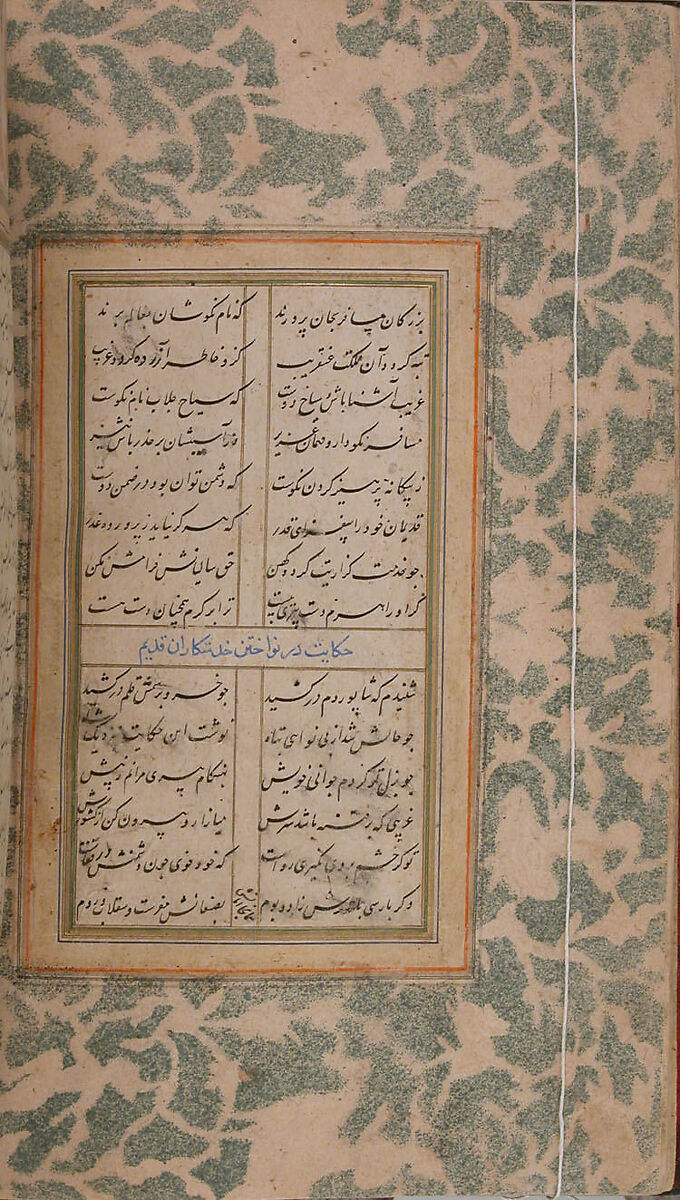 بزرگان مسافر بجان پرورند که نام نکوشان بعالم برند
تبه گردد آن مملکت عنقریب کزو خاطر آزرده گردد غریب
غریب آشنا باش و سیاح دوست که سیاح جلاب نام نکوست
مسافر نکو دار و مهمان عزیز وز آسیبشان بر حذر باش نیز
ز بیگانه پرهیز کردن نکوست که دشمن توان بود در ضمن دوست
قدیمان خود را بیفزای قدر که هرگز نیاید ز پرورده غدر
چو خدمت گزاریت گردد کهن حق سالیانش فرامش مکن
گر او را هرم دست بست ترا بر کرم همچنان دست هست
حکایت در نواختن خدمتکاران قدیم
شنیدم که شاپور دم درکشید چو خسرو برسمش قلم درکشید
چو حالش شد از بی نوایی تباه نوشت این حکایت بنزدیک شاه
چو بذل تو کردم جوانی خویش بهنگام پیری مرانم ز پیش
غریبی که پر فتنه باشد سرش میازار و بیرون کن از کشورش
تو گر خشم بر وی نگیری رواست که خود خوی بد دشمنش در قفاست
وگر پارسی باشدش زاد و بوم بصنعانش مفرست و سقلاب و روم